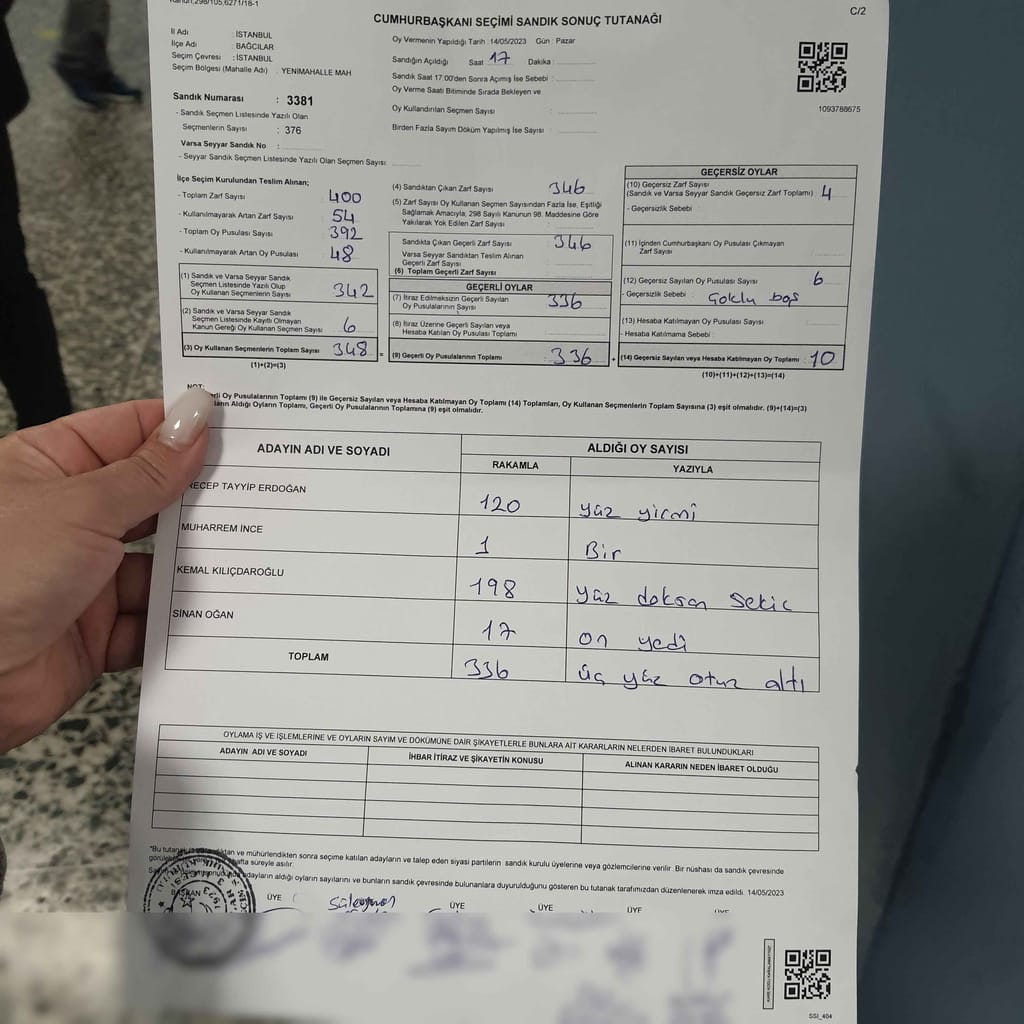 Kanun,298/105,6271/18-1
CUMHURBAŞKANI SEÇİMİ SANDIK SONUÇ TUTANAĞI
C/2
İl Adı : İSTANBUL
İlçe Adı : BAĞCILAR
Seçim Çevresi : İSTANBUL
Seçim Bölgesi (Mahalle Adı) : YENIMAHALLE MAH
Sandık Numarası : 3381
- Sandık Seçmen Listesinde Yazılı Olan
Seçmenlerin Sayısı : 376
Varsa Seyyar Sandık No :
- Seyyar Sandık Seçmen Listesinde Yazılı Olan Seçmen Sayısı :
Oy Vermenin Yapıldığı Tarih : 14/05/2023 Gün : Pazar
Sandığın Açıldığı Saat 17 Dakika :
Sandık Saat 17:00'den Sonra Açımış İse Sebebi :
Oy Verme Saati Bitiminde Sırada Bekleyen ve
Oy Kullandırılan Seçmen Sayısı :
Birden Fazla Sayım Döküm Yapılmış İse Sayısı :
1093788675
İlçe Seçim Kurulundan Teslim Alınan;
- Toplam Zarf Sayısı : 400
- Kullanılmayarak Artan Zarf Sayısı : 54
- Toplam Oy Pusulası Sayısı : 392
- Kullanılmayarak Artan Oy Pusulası : 48
(1) Sandık ve Varsa Seyyar Sandık
Seçmen Listesinde Yazılı Olup
Oy Kullanan Seçmenlerin Sayısı : 342
(2) Sandık ve Varsa Seyyar Sandık
Seçmen Listesinde Kayıtlı Olmayan
Kanun Gereği Oy Kullanan Seçmen Sayısı : 6
(3) Oy Kullanan Seçmenlerin Toplam Sayısı : 348 =
(1)+(2)=(3)
(4) Sandıktan Çıkan Zarf Sayısı : 346
(5) Zarf Sayısı Oy Kullanan Seçmen Sayısından Fazla İse, Eşitliği
Sağlamak Amacıyla; 298 Sayılı Kanunun 98. Maddesine Göre
Yakılarak Yok Edilen Zarf Sayısı :
Sandıkta Çıkan Geçerli Zarf Sayısı : 346
Varsa Seyyar Sandıktan Teslim Alınan
Geçerli Zarf Sayısı :
(6) Toplam Geçerli Zarf Sayısı :
GEÇERLİ OYLAR
(7) İtiraz Edilmeksizin Geçerli Sayılan
Oy Pusulalarının Sayısı : 336
(8) İtiraz Üzerine Geçerli Sayılan veya
Hesaba Katılan Oy Pusulası Toplamı :
(9) Geçerli Oy Pusulalarının Toplamı : 336 +
GEÇERSİZ OYLAR
(10) Geçersiz Zarf Sayısı
(Sandık ve Varsa Seyyar Sandık Geçersiz Zarf Toplamı) : 4
- Geçersizlik Sebebi :
(11) İçinden Cumhurbaşkanı Oy Pusulası Çıkmayan
Zarf Sayısı :
(12) Geçersiz Sayılan Oy Pusulası Sayısı : 6
- Geçersizlik Sebebi : Çoklu boş
(13) Hesaba Katılmayan Oy Pusulası Sayısı :
- Hesaba Katılmama Sebebi :
(14) Geçersiz Sayılan veya Hesaba Katılmayan Oy Toplamı : 10
(10)+(11)+(12)+(13)=(14)
NOT:
Oy Pusulalarının Toplamı (9) ile Geçersiz Sayılan veya Hesaba Katılmayan Oy Toplamı (14) Toplamları, Oy Kullanan Seçmenlerin Toplam Sayısına (3) eşit olmalıdır. (9)+(14)=(3)
Aldığı Oyların Toplamı, Geçerli Oy Pusulalarının Toplamına (9) eşit olmalıdır.
ADAYIN ADI VE SOYADI
ALDIĞI OY SAYISI
RAKAMLA YAZIYLA
RECEP TAYYİP ERDOĞAN 120 yüz yirmi
MUHARREM İNCE 1 Bir
KEMAL KILIÇDAROĞLU 198 yüz doksan sekiz
SİNAN OĞAN 17 on yedi
TOPLAM 336 üç yüz otuz altı
OYLAMA İŞ VE İŞLEMLERİNE VE OYLARIN SAYIM VE DÖKÜMÜNE DAİR ŞİKAYETLERLE BUNLARA AİT KARARLARIN NELERDEN İBARET BULUNDUKLARI
ADAYIN ADI VE SOYADI İHBAR İTİRAZ VE ŞİKAYETİN KONUSU ALINAN KARARIN NEDEN İBARET OLDUĞU
"Bu tutanak ve mühürlendikten sonra seçime katılan adayların ve talep eden siyasi partilerin sandık kurulu üyelerine veya gözlemcilerine verilir. Bir nüshası da sandık çevresinde
hafta süreyle asılır.
adayların aldığı oyların sayılarını ve bunların sandık çevresinde bulunanlara duyurulduğunu gösteren bu tutanak tarafımızdan düzenlenerek imza edildi. 14/05/2023
BAŞKAN ÜYE Süleyman ÜYE ÜYE ÜYE ÜYE
SSI_404